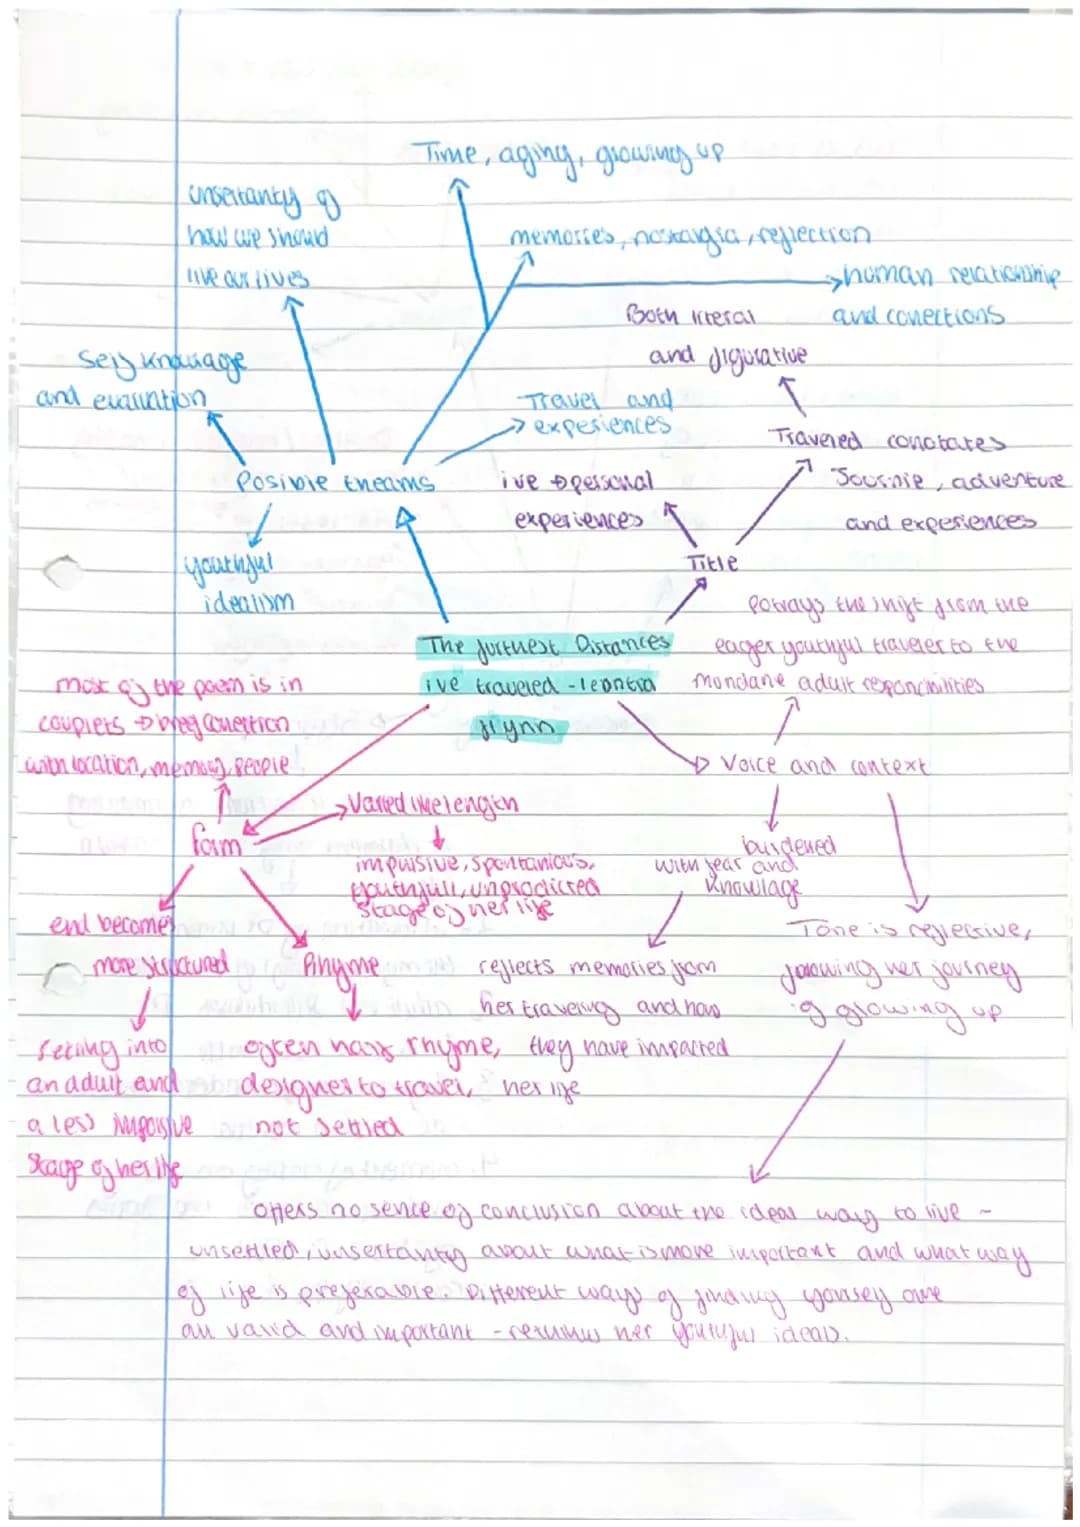 Time, aging, growing up
unsertanty of
how we should
live our lives
memories, nostalgia, reflection
human relationship
and conections
Both literal
and figurative
Self knowlage
and evaluation
Travel and
experiences
Traveled conotates
Journie, adventure
and experiences
Posible theams
ive → personal
experiences
Title
youthful
idealism
The furthest Distances
ive traveled - leontia
flynn
Potrays the shift from the
eager youthful traveler to the
mondane adult responcibilities
most of the poem is in
couplets → breef conection
with location, memory, people
Voice and context
Varied line length
form
impulsive, spontanious,
youthfull, unprodicted
stage of her life
burdened
with fear and
knowlage
end becomes
more structured
Rhyme
reflects memories from
her traveling and how
they have impacted
her life
Tone is reflective,
folowing her journey
of growing up
setling into
an adult and
a less impolsive
stage of her life
often half rhyme,
designer to travel,
not settled
offers no sence of conclusion about the ideal way to live -
unsettled, unsertanty about what is more important and what way
of life is preferable. Different ways of finding yoursey are
all valid and important - returning her youthful ideals.